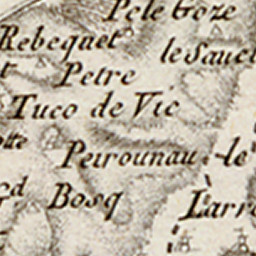 Pele Goze
Rebequet
le Sauc
Petre
Tuco de Vic
Peirounau
le
Gd Bosq
Larr